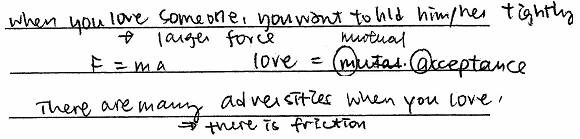 when you love someone, you want to hld him/her tightly
→ larger force mutual
F = ma love = mutas. acceptance
There are many adversities when you love.
⇒ there is friction